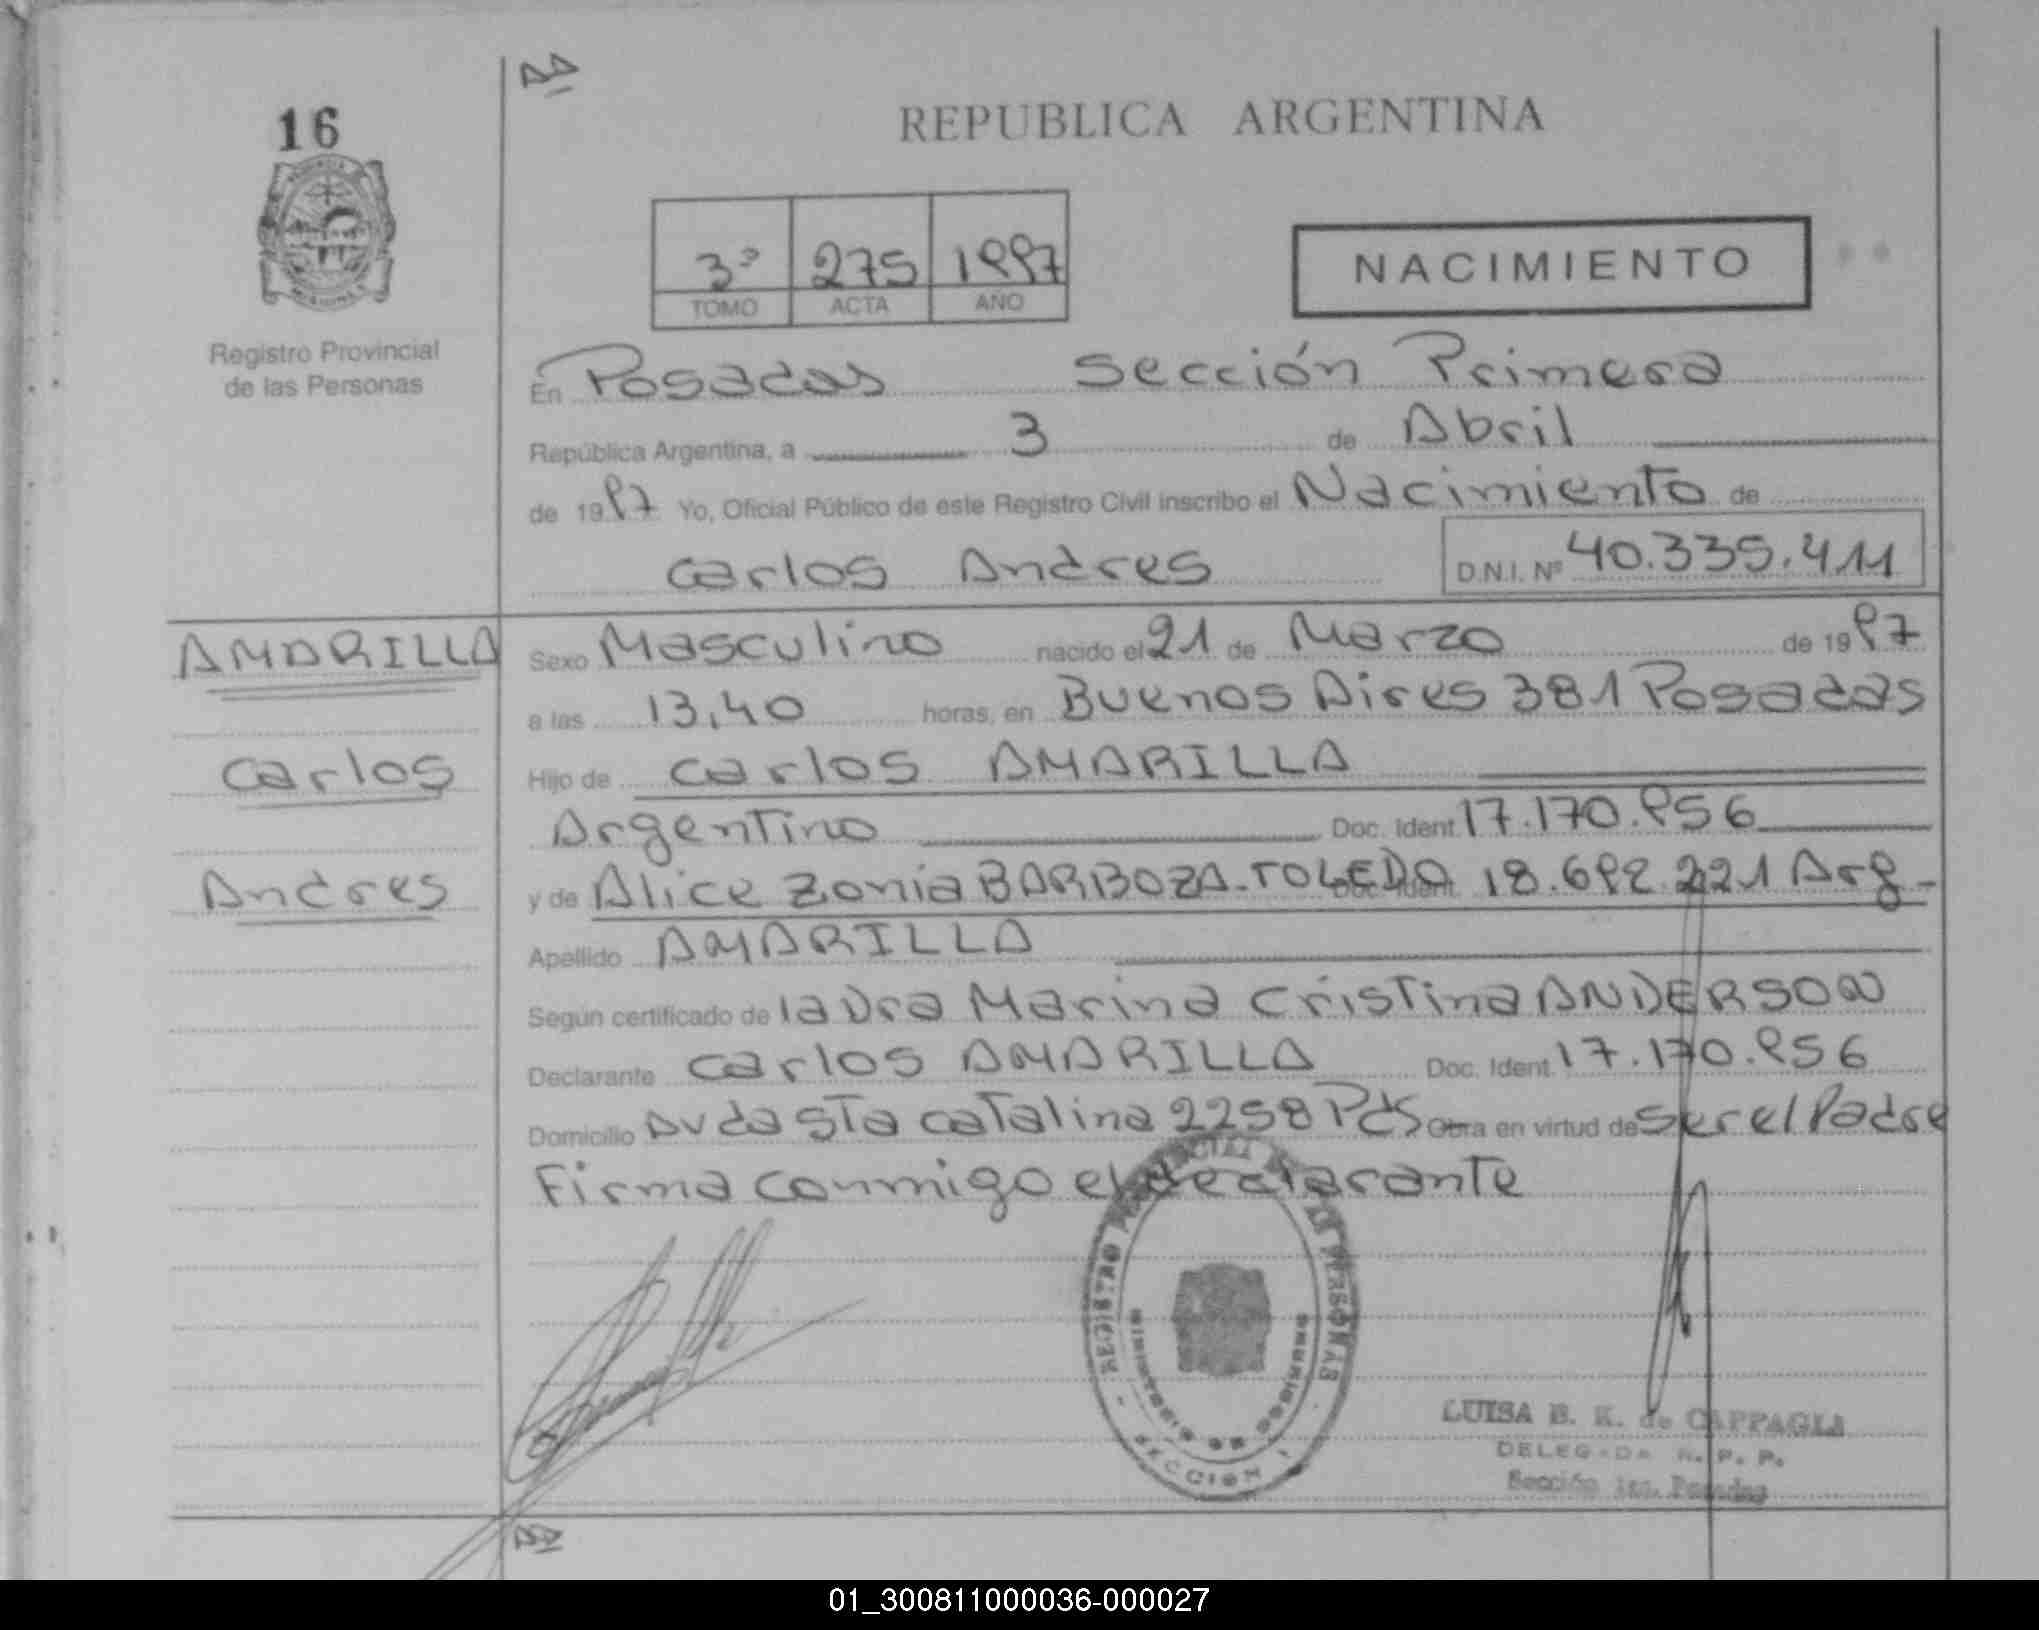 16
REPUBLICA ARGENTINA
3º 275 1997
TOMO ACTA AÑO
NACIMIENTO
Registro Provincial
de las Personas
En Posadas Sección Primera
República Argentina, a 3 de Abril
de 1997 Yo, Oficial Público de este Registro Civil inscribo el Nacimiento de
Carlos Andres D.N.I. Nº 40.335.411
AMARILLA
Carlos
Andres
Sexo Masculino nacido el 21 de Marzo de 1997
a las 13,40 horas, en Buenos Aires 381 Posadas
Hijo de Carlos AMARILLA
Argentino Doc. Ident. 17.170.956
y de Alice Zonia BARBOZA-TOLEDO Doc. Ident. 18.692.221 Arg-
Apellido AMARILLA
Según certificado de la Dra Marina Cristina ANDERSON
Declarante Carlos AMARILLA Doc. Ident. 17.170.956
Domicilio Avda Sta Catalina 2258 Pds Obra en virtud de ser el Padre
Firma conmigo el declarante
REGISTRO PROVINCIAL DE LAS PERSONAS
MINISTERIO DE GOBIERNO
SECCION 1
LUISA B. K. de CAPPAGLI
DELEGADA R. P. P.
Sección 1ra. Posadas
01_300811000036-000027